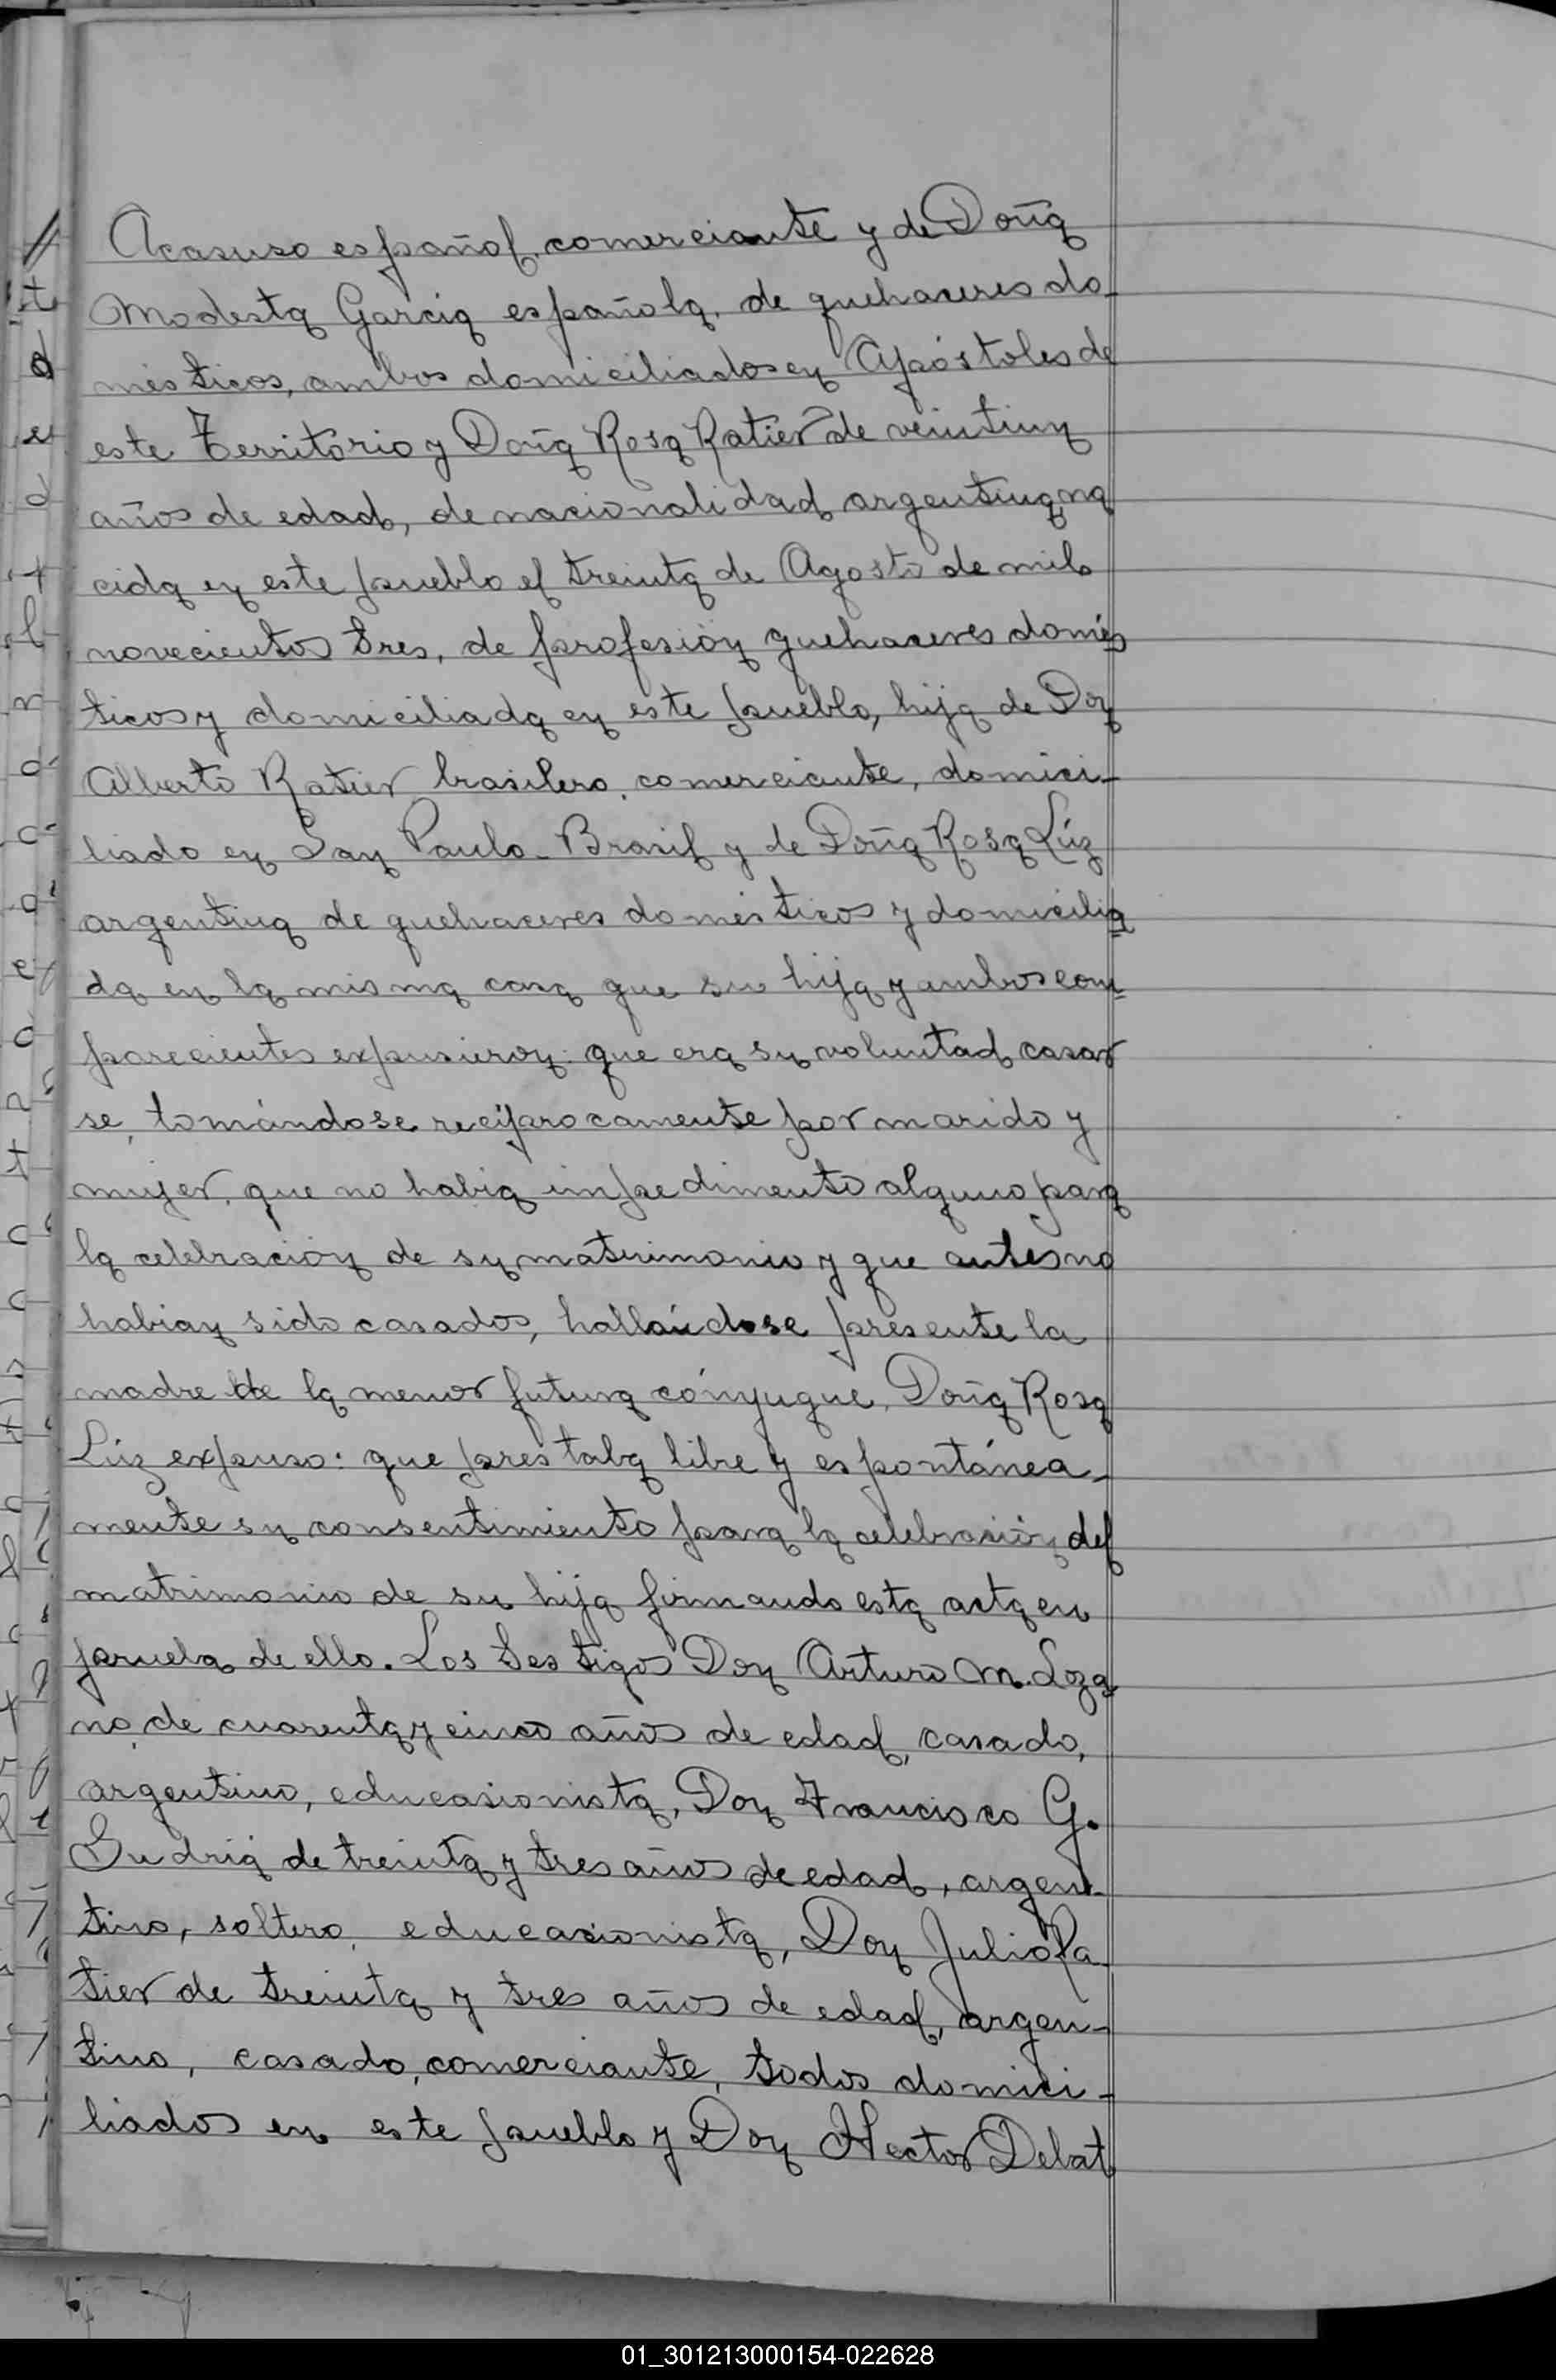 Acasuso español, comerciante y de Doña
Modesta Garcia española, de quehaceres do-
mésticos, ambos domiciliados en Apóstoles de
este Territorio y Doña Rosa Ratier de veintiun
años de edad, de nacionalidad argentina, na
cida en este pueblo el treinta de Agosto de mil
novecientos tres, de profesión quehaceres domés
ticos y domiciliada en este pueblo, hija de Don
Alberto Ratier brasilero, comerciante, domici-
liado en San Paulo - Brasil y de Doña Rosa Lúz
argentina de quehaceres domésticos y domicilia
da en la misma casa que su hija y ambos com
parecientes expusieron: que era su voluntad casar
se, tomándose recíprocamente por marido y
mujer, que no habia impedimento alguno para
la celebración de su matrimonio y que antes no
habian sido casados, hallándose presente la
madre de la menor futura cónyugue, Doña Rosa
Lúz expuso: que prestaba libre y espontánea-
mente su consentimiento para la celebración del
matrimonio de su hija firmando esta acta en
prueba de ello. Los testigos Don Arturo M. Loza
no, de cuarenta y cinco años de edad, casado,
argentino, educasionista, Don Francisco G.
de treinta y tres años de edad, argen-
tino, soltero, educasionista, Don Julio Ra-
tier de treinta y tres años de edad, argen-
tino, casado, comerciante, todos domici-
liados en este pueblo y Don Hector Debat
01_301213000154-022628